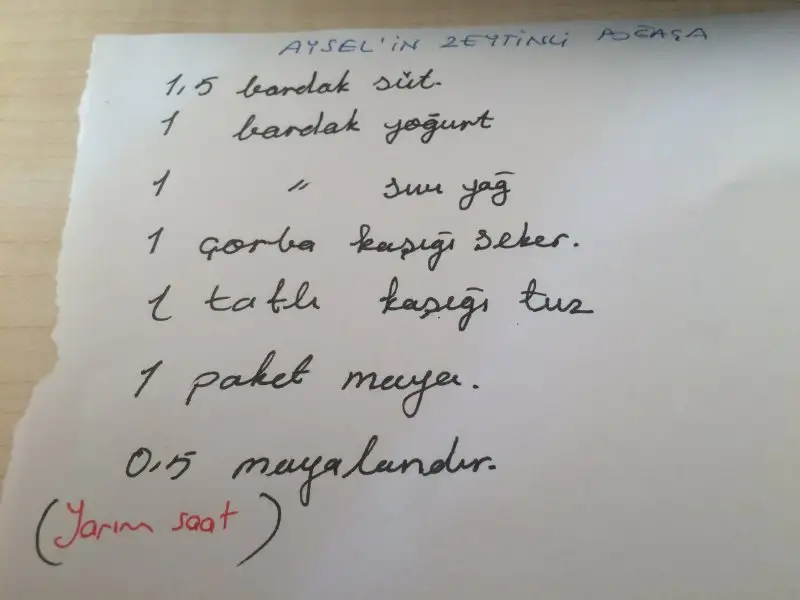 AYSEL'İN ZEYTİNLİ POĞAÇA
1,5 bardak süt.
1 bardak yoğurt
1 " sıvı yağ
1 çorba kaşığı şeker.
1 tatlı kaşığı tuz
1 paket maya.
0,5 mayalandır.
(Yarım saat)